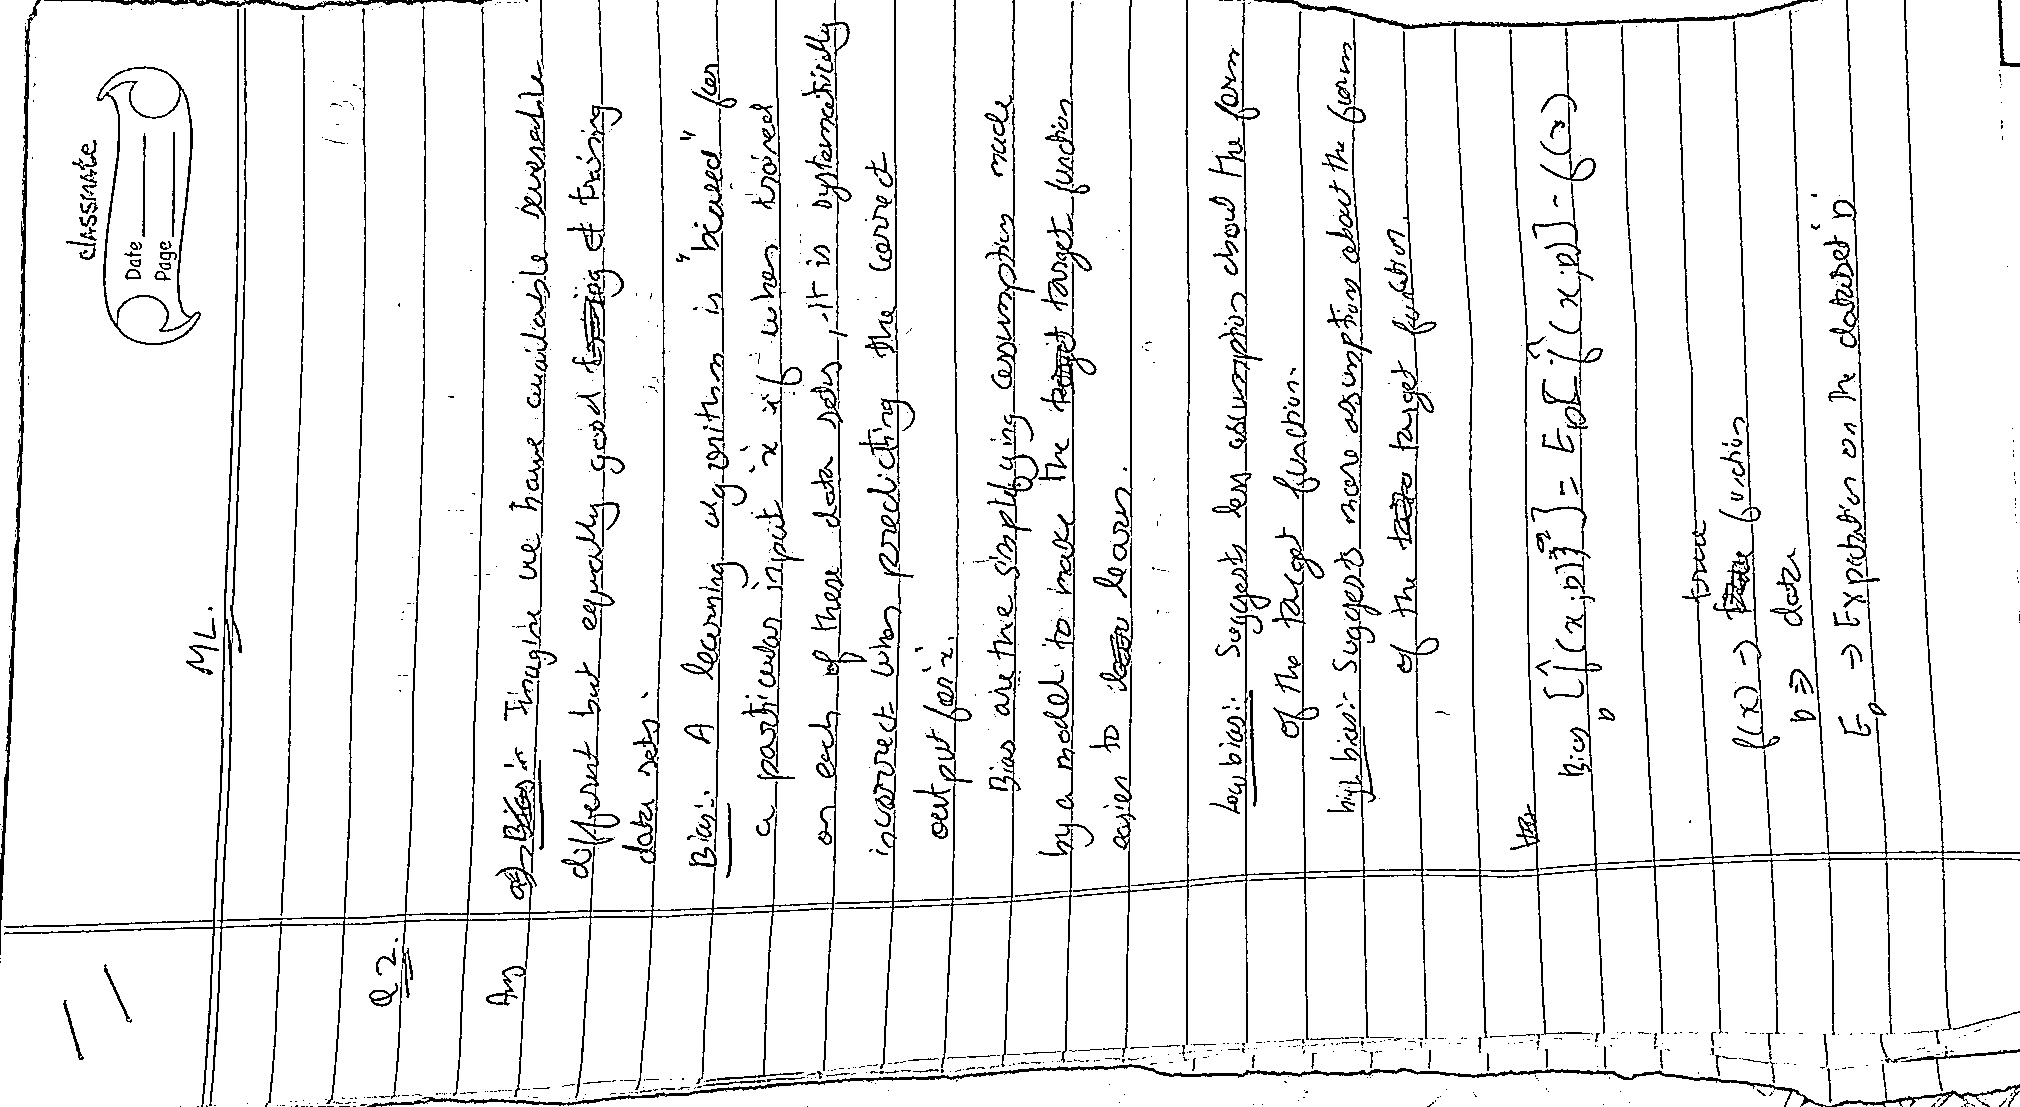 classmate
Date
Page
ML.
Q 2.
Ans a) Bias :- Imagine we have available several
different but equally good training of training
data sets.
Bias:- A learning algorithm is "biased" for
a particular input 'x' if when trained
on each of these data sets, it is systematically
incorrect when predicting the correct
output for 'x'.
Bias are the simplifying assumption made
by a model to make the target target function
easier to learn.
Low bias:- Suggests less assumption about the form
of the target function.
high bias:- Suggests more assumption about the form
of the target function.
Bias_D [f̂(x;D)]²] = E_D[f̂(x;D)] - f(x)
true
f(x) → function
D ⇒ data
E_D → Expectation on the dataset D